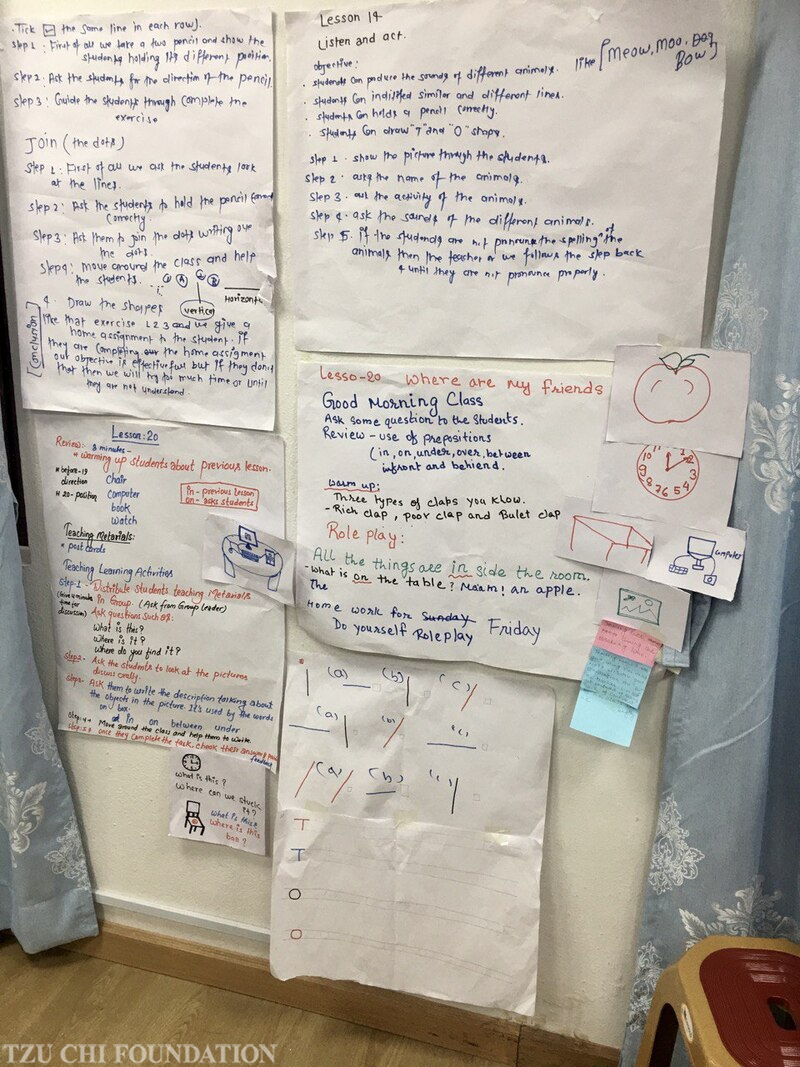 Tick ☑ the same line in each row).
Step 1: First of all we take a two pencil and show the
students holding its different position.
Step 2: Ask the students for the direction of the pencil.
Step 3: Guide the students through complete the
exercise
Join (the dots)
Step 1: First of all we ask the students look
at the lines.
Step 2: Ask the students to hold the pencil
correctly.
Step 3: Ask them to join the dots writing over
the dots.
Step 4: Move around the class and help
the students.
Horizontal
vertical
4. Draw the shapes
like that exercise 1 2 3 and we give a
home assignment to the student. if
they are completing our the home assigment
our objective is effectiveful but if they don't
that then we will try to much time or until
they are not understand.
[Conclusion]
Lesson 19
Listen and act.
like [Meow, Moo, Dog
Bow]
objective:
students can produce the sounds of different animals.
students can indisifed similar and different lines.
students can holds a pencil correctly.
students can draw "T" and "O" shape.
step 1 - show the picture through the students.
step 2 - asks the name of the animals.
step 3 - ask the activity of the animals.
step 4 - ask the sounds of the different animals.
step 5. if the students are not pronounce the spelling of the
animals then the teacher or we follows the step back
until they are not pronounce properly.
Lesson: 20
Review: 3 minutes-
* warming up students about previous lesson.
* before-19
direction
Chair
* 20-position
Computer
book
watch
in - previous lesson
on - asks students
Teaching Metarials:
* post cards
Teaching Learning Activities
Step-1 - Distribute students teaching Metarials
in Group. (Ask from Group leader)
(Give 4 minutes
time for
discussion)
Ask questions such as:
What is this?
Where is it?
Where do you find it?
Step2- Ask the students to look at the pictures
discuss orally.
Step3- Ask them to write the description talking about
the objects in the picture. It's used by the words
on box.
at in on between under
Step:4 - Move around the class and help them to write.
Step:5 - once they complete the task, check their answer &
feedback
What is this?
Where can we stuck
it?
What is this?
Where is this
ban?
Lesso-20 Where are my friends
Good Morning Class
Ask some question to the students.
Review - use of prepositions
(in, on, under, over, between
infront and behiend.
Warm up:
Three types of claps you know.
- Rich clap, poor clap and Bulet clap
Role play:
All the things are in side the room.
- What is on the table? Ma'am! an apple.
The
Home work for Sunday Friday
Do yourself Roleplay
11 12 1 2 3 4 5 6 7 8 9 10
Computer
(a) (b) (c)
(a) (b) (c)
(a) (b) (c)
T
T
O
O
TZU CHI FOUNDATION